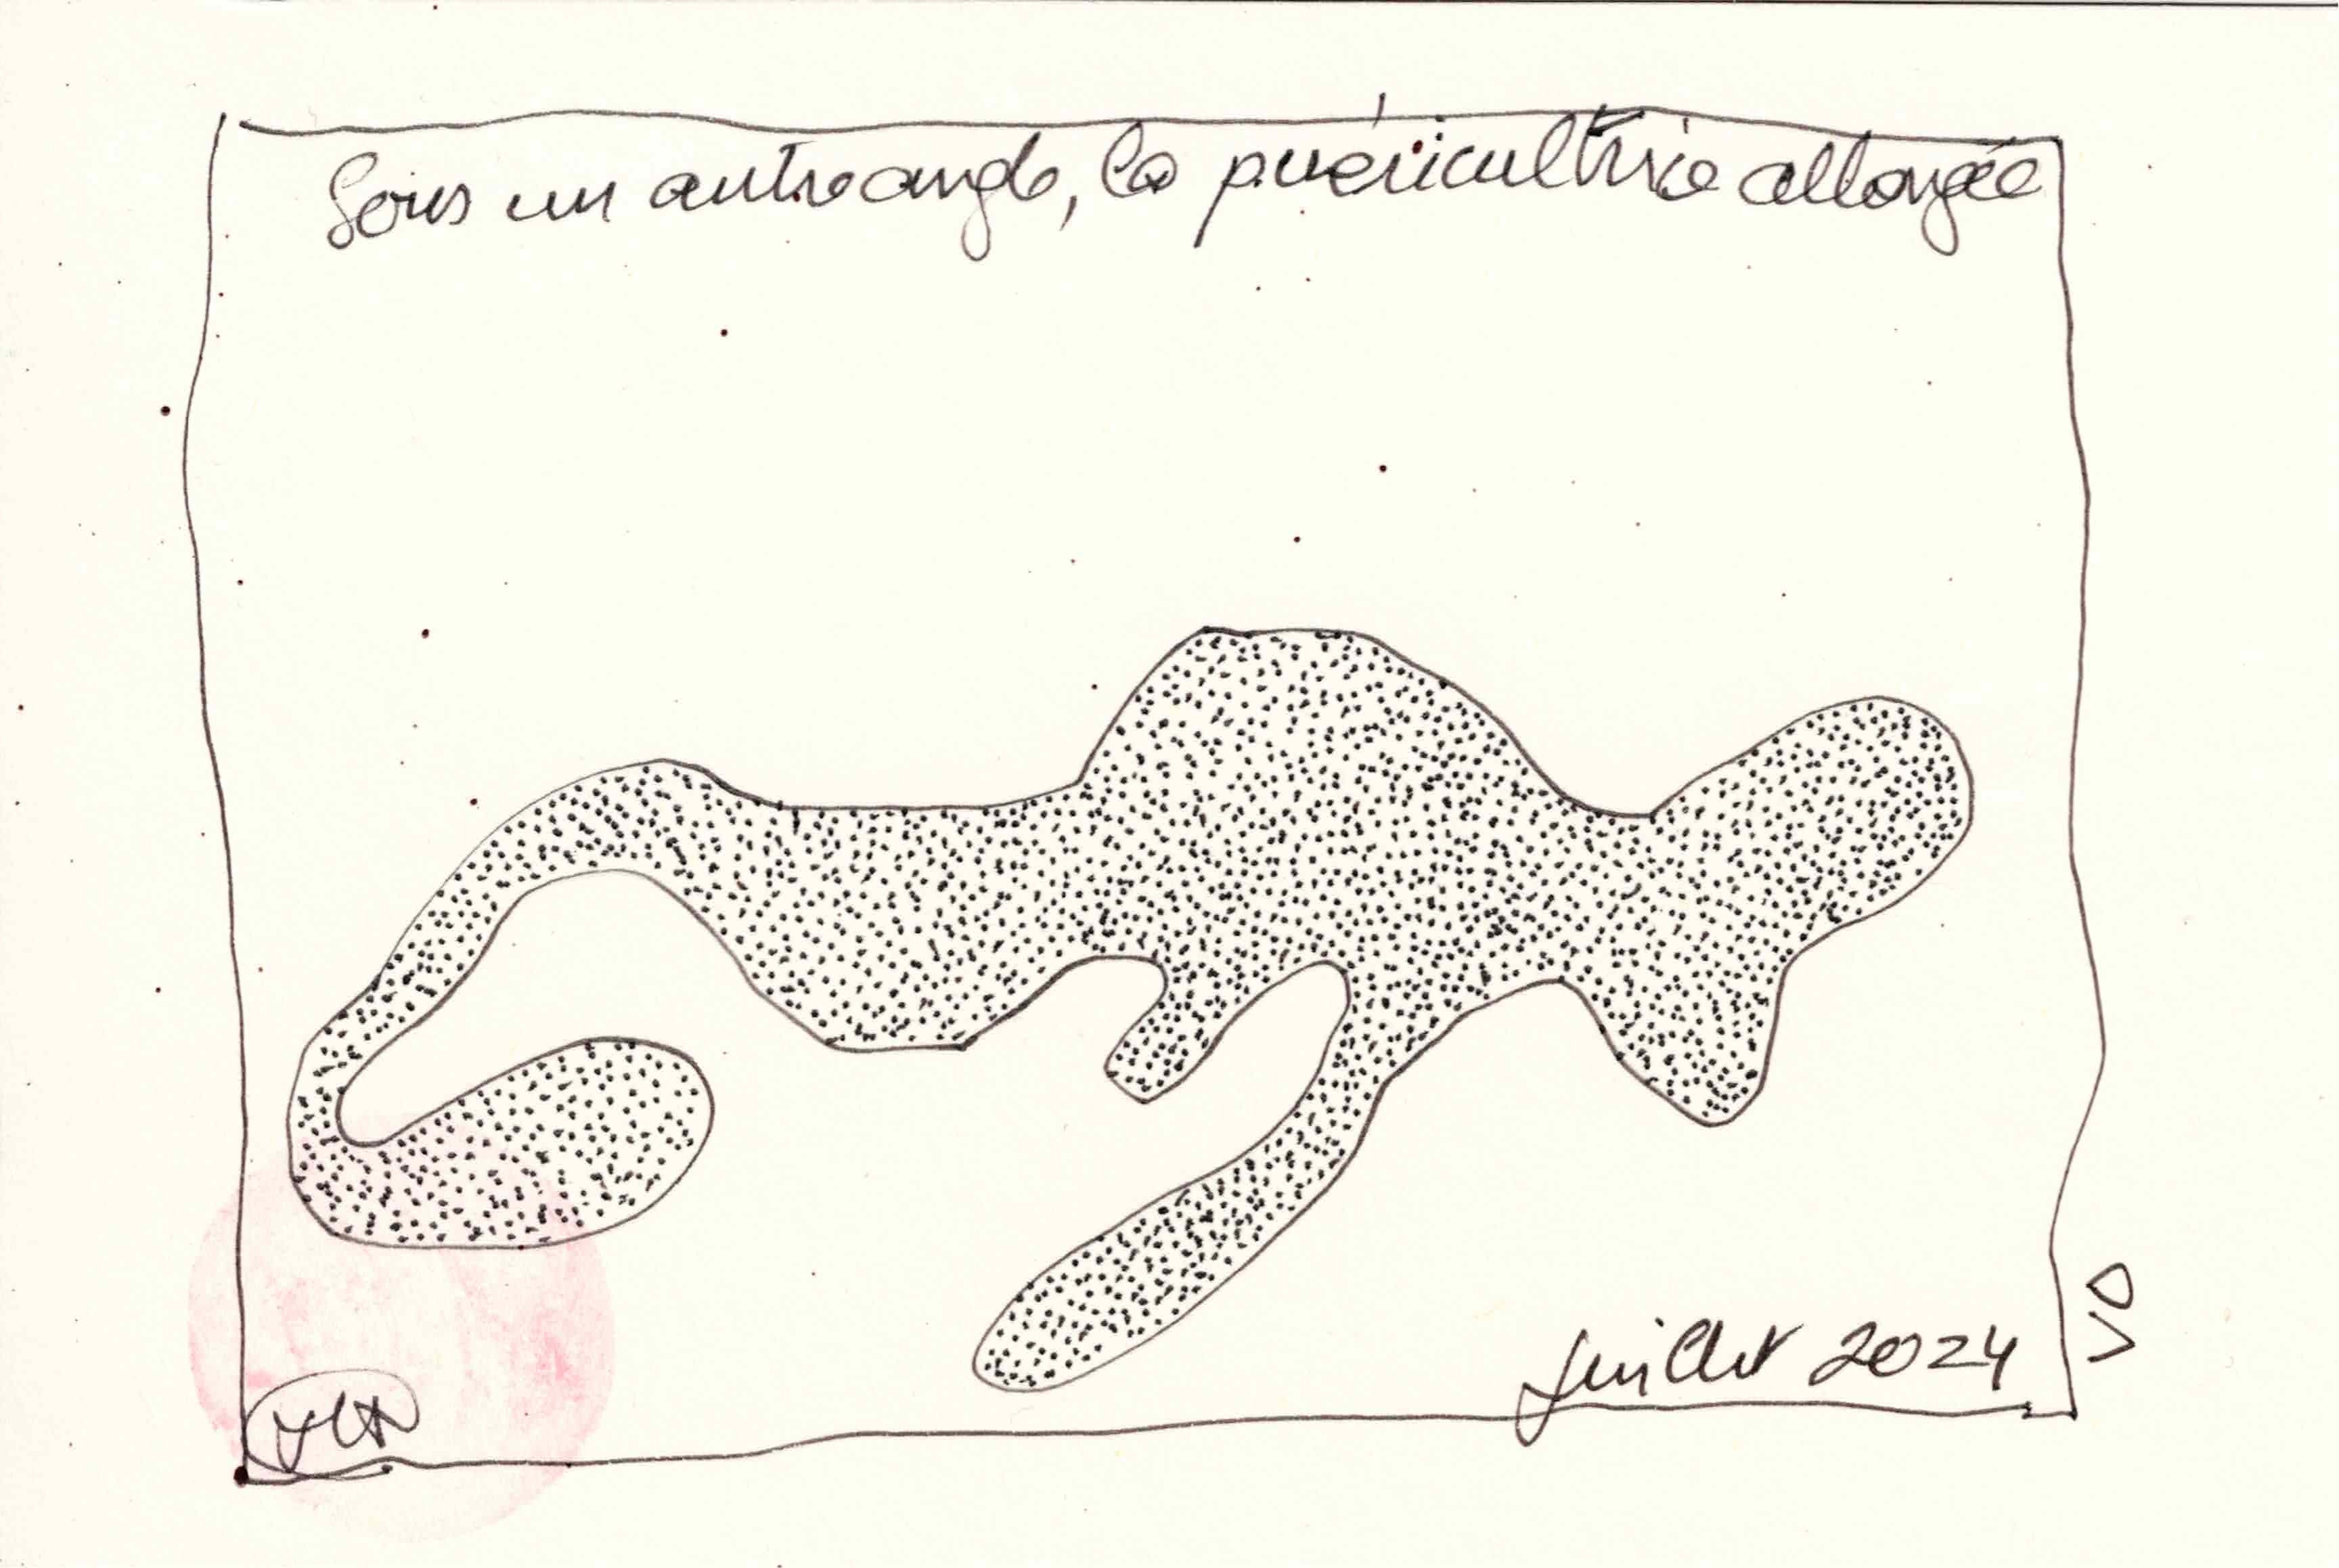 Sous un autre angle, la puéricultrice allongée
Juillet 2024
VD